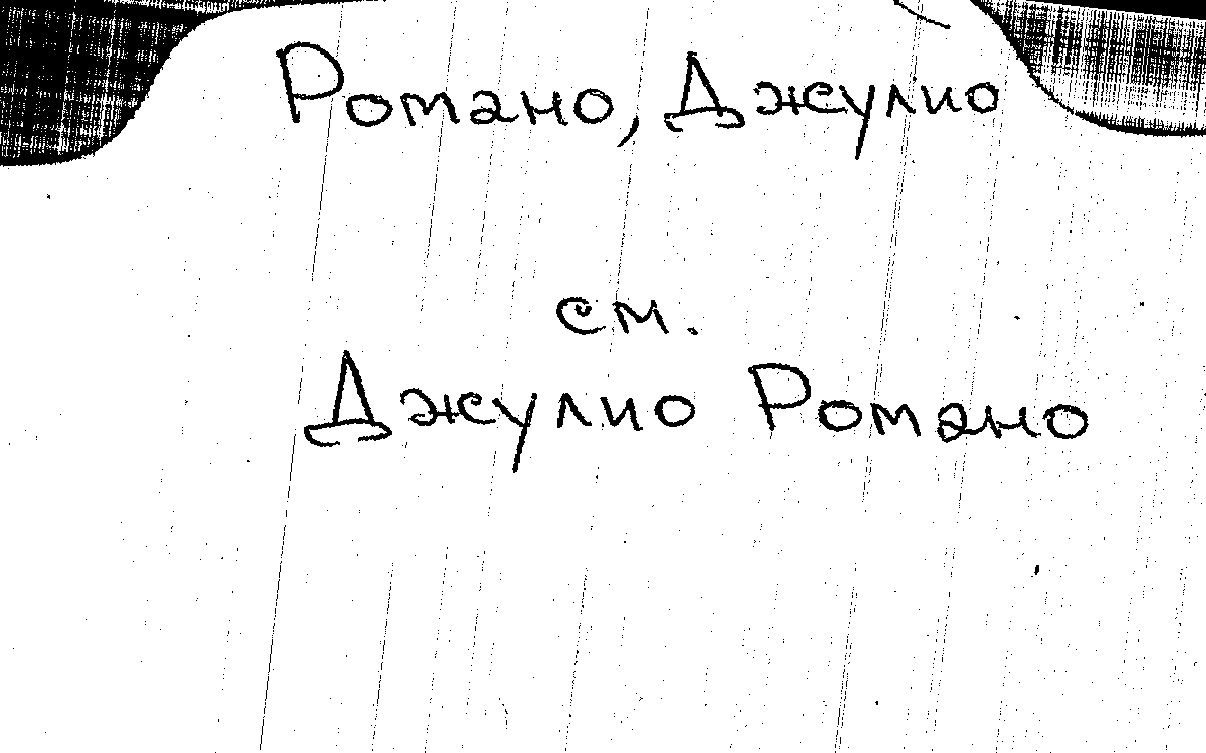 Романо, Джулио
см.
Джулио Романо